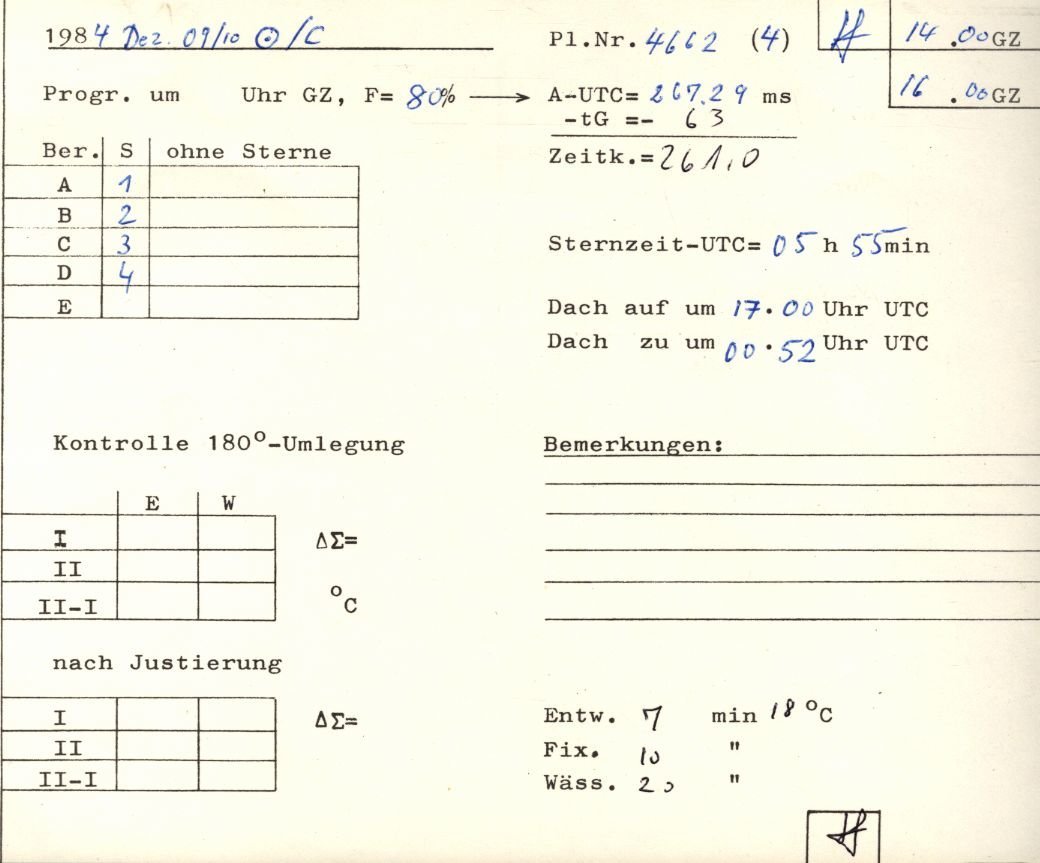 1984 Dez. 09/10 ⊙/C
Pl.Nr. 4662 (4)
14.00 GZ
16.00 GZ
Progr. um Uhr GZ, F= 80% → A-UTC= 267.29 ms
-tG =- 63
Zeitk.=261,0
Ber. S ohne Sterne
A 1
B 2
C 3
D 4
E
Sternzeit-UTC= 05 h 55min
Dach auf um 17.00 Uhr UTC
Dach zu um 00.52 Uhr UTC
Kontrolle 180°-Umlegung
E W
I ΔΣ=
II
II-I °C
nach Justierung
I ΔΣ=
II
II-I
Bemerkungen:
Entw. 7 min 18 °C
Fix. 10 "
Wäss. 20 "